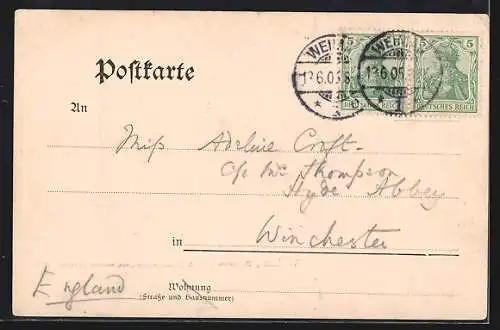 5 5
13.6.05.8
13.6.05
DEUTSCHES REICH DEUTSCHES REICH
1
Postkarte
An
Miss Adeline Croft.
C/o Mrs Thompson
Hyde Abbey
in Winchester
England
Wohnung
(Straße und Hausnummer)